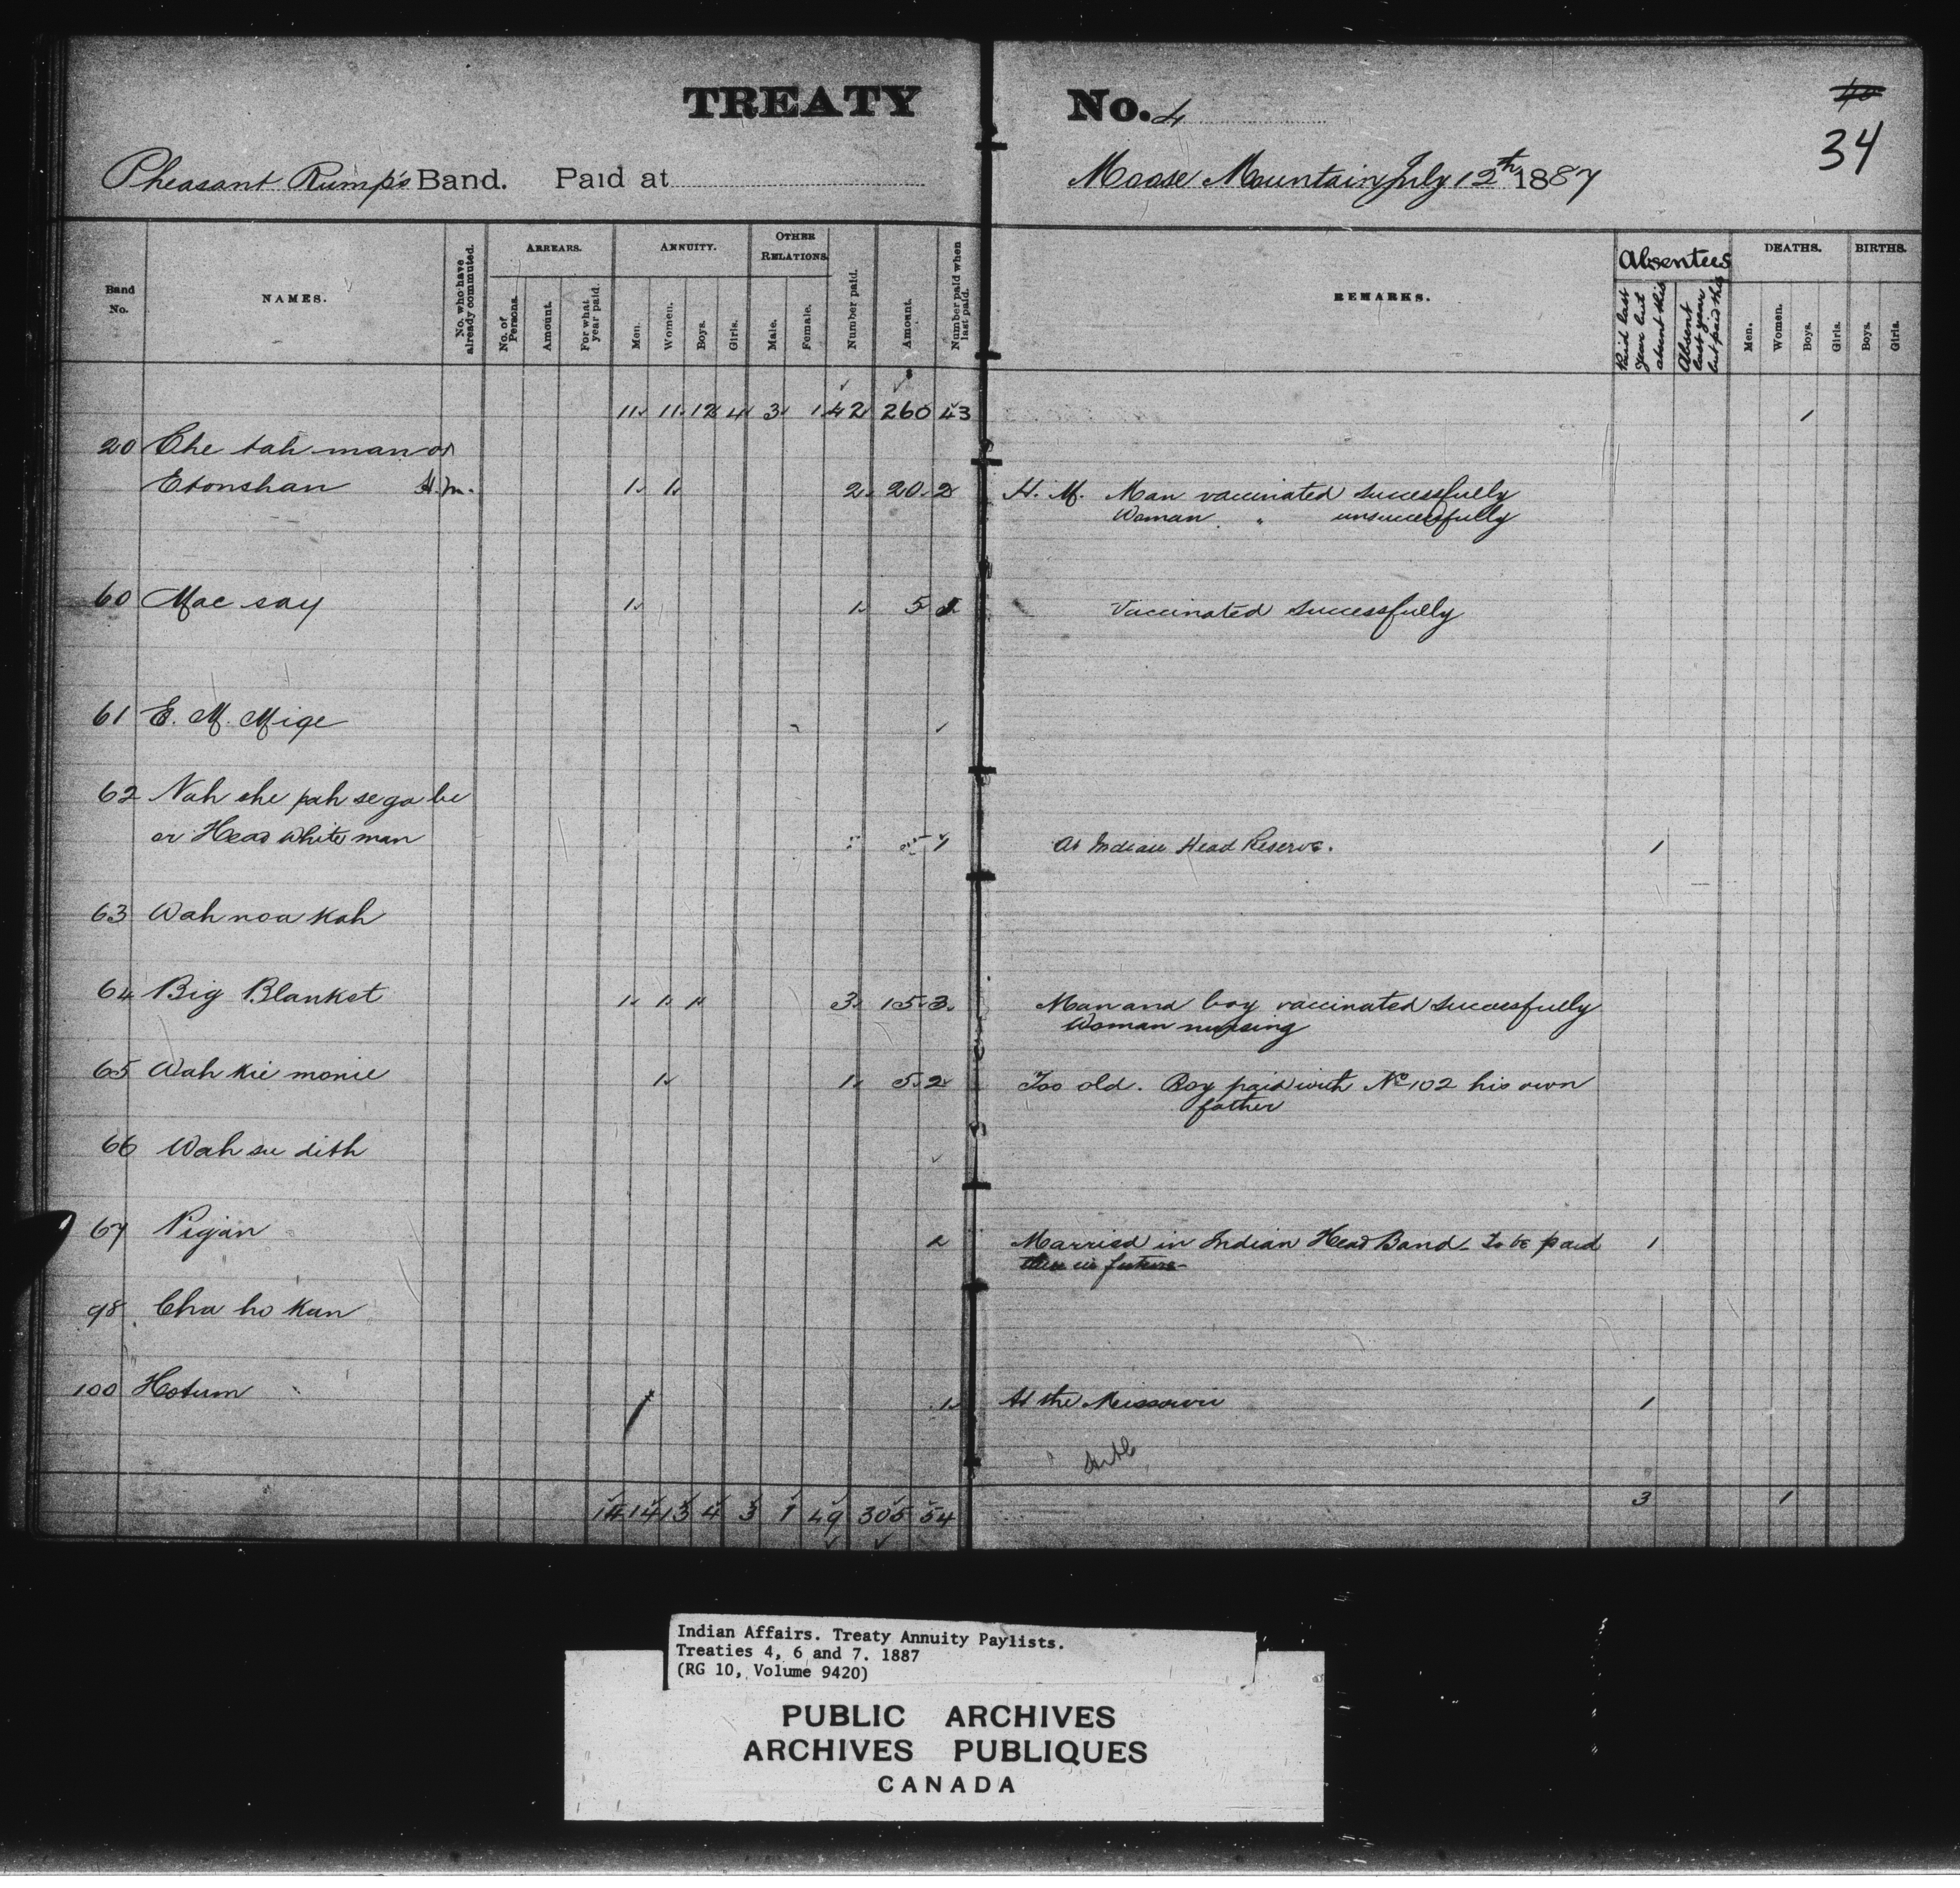 TREATY No. 4
40
34
Pheasant Rump's Band. Paid at Moose Mountain July 12th 1887
Band No.
NAMES.
No. who have already commuted.
ARREARS.
No. of Persons.
Amount.
For what year paid.
ANNUITY.
Men.
Women.
Boys.
Girls.
OTHER RELATIONS
Male.
Female.
Number paid.
Amount.
Number paid when last paid.
REMARKS.
Absentees
Paid last year but absent this
Absent last year but paid this
DEATHS.
Men.
Women.
Boys.
Girls.
BIRTHS.
Boys.
Girls.
11 11 12 4 3 1 42 260 43 1
20 Che tah man or
Etonshan H.M. 1 1 2 20 2 H. M. Man vaccinated successfully
Woman " unsuccessfully
60 Mac say 1 1 5 1 Vaccinated successfully
61 E. M. Mige
62 Nah she pah se ga be
or Head White man 1 At Indian Head Reserve. 1
63 Wah noa kah
64 Big Blanket 1 1 1 3 15 3 Man and boy vaccinated successfully
Woman nursing
65 Wah kie monie 1 1 5 2 Too old. Boy paid with No 102 his own
father
66 Wah su dith
67 Pigan 2 Married in Indian Head Band. To be paid 1
there in future
98 Cha ho kan
100 Hotum 1 At the Missouri 1
14 14 13 4 3 1 49 305 54 3 1
Indian Affairs. Treaty Annuity Paylists.
Treaties 4, 6 and 7. 1887
(RG 10, Volume 9420)
PUBLIC ARCHIVES
ARCHIVES PUBLIQUES
CANADA